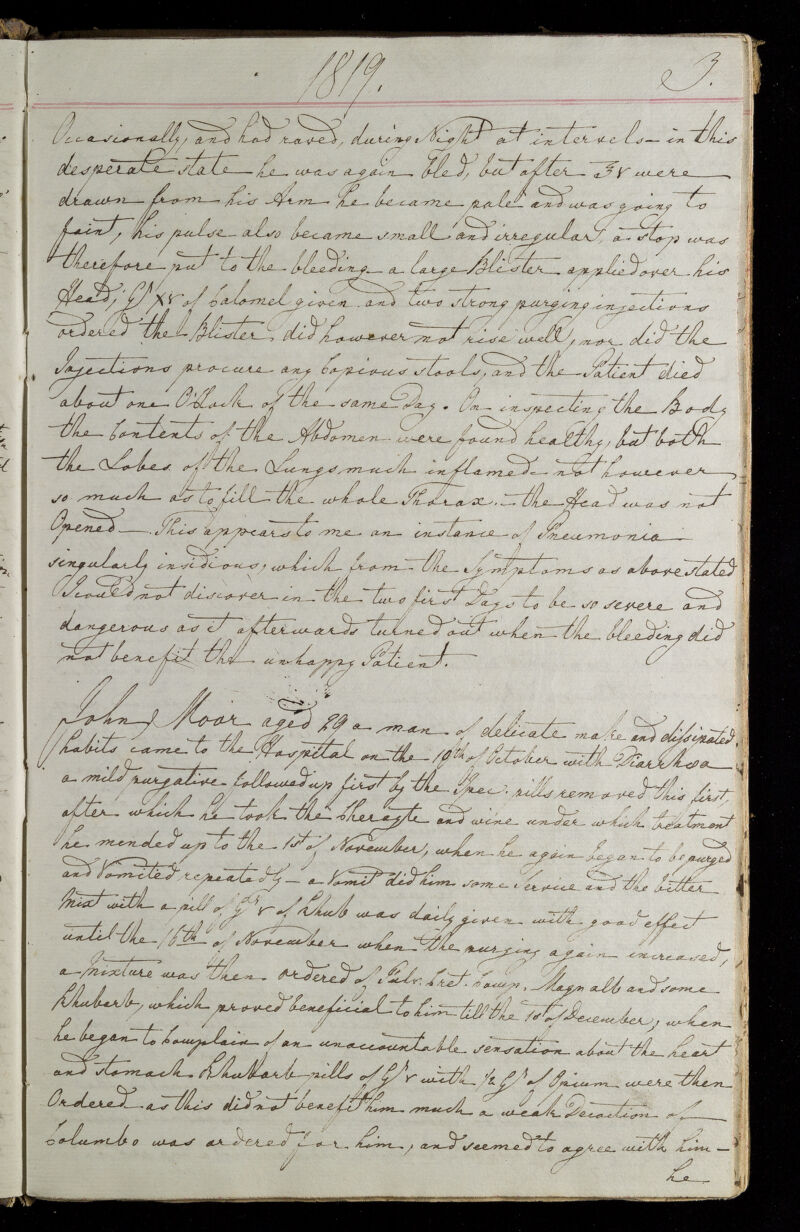 1819. 3.
Occasionally, and had raved, during Night at intervels - in this
desperate state he was again bled, but after ℥v were
drawn from his Arm he became pale and was going to
faint, his pulse also became small and irregular, a stop was
therefore put to the bleeding a large Blister applied over his
Head, Gr XV of Calomel given and two strong purging injections
ordered the Blister did however not rise well, nor did the
Injections procure any Copious stools, and the Patient died
about one O'Clock of the same Day. On inspecting the Body
the Contents of the Abdomen were found healthy, but both
the Lobes of the Lungs much inflamed not however
so much as to fill the whole Thorax. - the Head was not
Opened - This appears to me an instance of Pneumonia
singularly insidious, which from the Symptoms as above stated
I could not discover in the two first Days to be so severe and
dangerous as it afterwards turned out when the bleeding did
not benefit the unhappy Patient.
John Moor aged 29 a man of delicate make and dissipated
habits came to the Hospital on the 19th of October with Diarrhœa
a mild purgative followed up first by the Ipec. pills removed this first,
after which he took the and wine under which treatment
he mended up to the 1st of November, when he again began to be purged
and Vomited repeatedly - a Vomit did him some Service and the bitter
Mixt with a pill of Gr v of Rhub was daily given with good effect
until the 16th of November when the purging again increased,
a Mixture was then ordered of Pulv. Cret. Comp. Magn alb and some
Rhubarb, which proved beneficial to him till the 1st of December, when
he began to Complain of an unaccountable sensation about the heart
and stomach Rhubarb pills of Gr v with 1/2 Gr of Opium were then
Ordered as this did not benefit him much a weak Decoction of
Columbo was ordered for him, and seemed to agree with him -
he